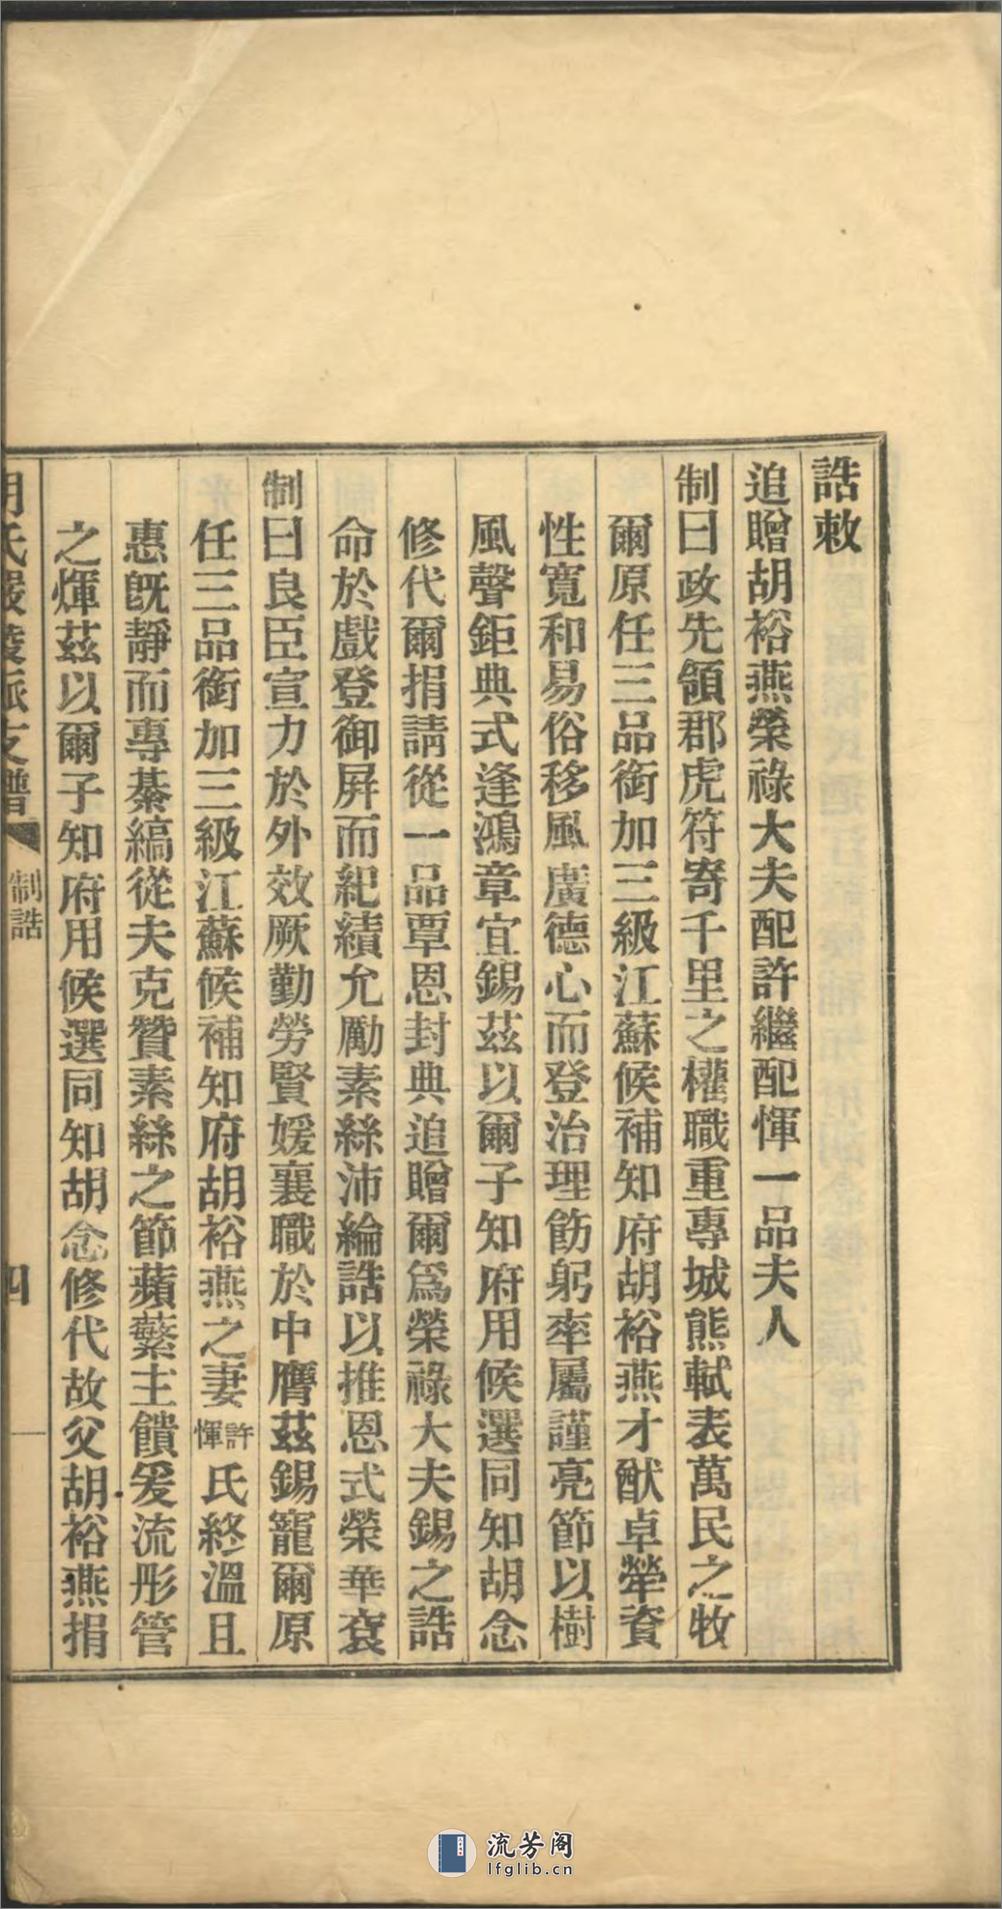 誥敕
追贈胡裕燕榮祿大夫配許繼配惲一品夫人
制曰政先領郡虎符寄千里之權職重專城熊軾表萬民之牧
爾原任三品銜加三級江蘇候補知府胡裕燕才猷卓犖資
性寬和易俗移風廣德心而登治理飭躬率屬謹亮節以樹
風聲鉅典式逢鴻章宜錫茲以爾子知府用候選同知胡念
修代爾捐請從一品覃恩封典追贈爾爲榮祿大夫錫之誥
命於戲登御屏而紀績允勵素絲沛綸誥以推恩式榮華袞
制曰良臣宣力於外效厥勤勞賢媛襄職於中膺茲錫寵爾原
任三品銜加三級江蘇候補知府胡裕燕之妻許惲氏終溫且
惠旣靜而專綦縞從夫克贊素絲之節蘋蘩主饋爰流彤管
之煇茲以爾子知府用候選同知胡念修代故父胡裕燕捐
胡氏嚴陵派支譜 制誥 四
流芳阁
lfglib.cn